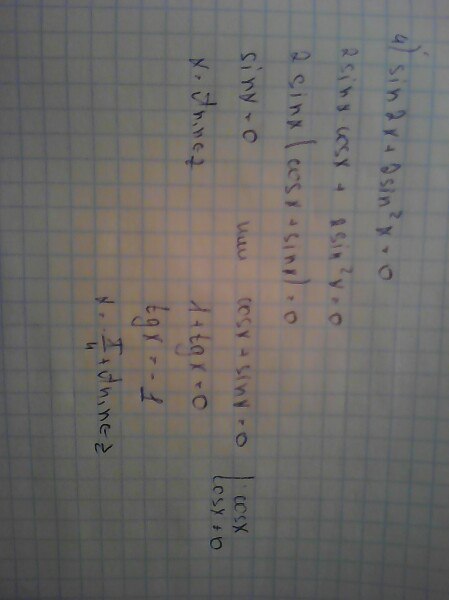 4) sin2x+2sin²x=0
2sinx cosx + 2sin²x=0
2sinx(cosx+sinx)=0
sinx=0 или cosx+sinx=0 |:cosx
x=πn, n∈Z 1+tgx=0 cosx≠0
tgx=-1
x=-π/4+πn, n∈Z